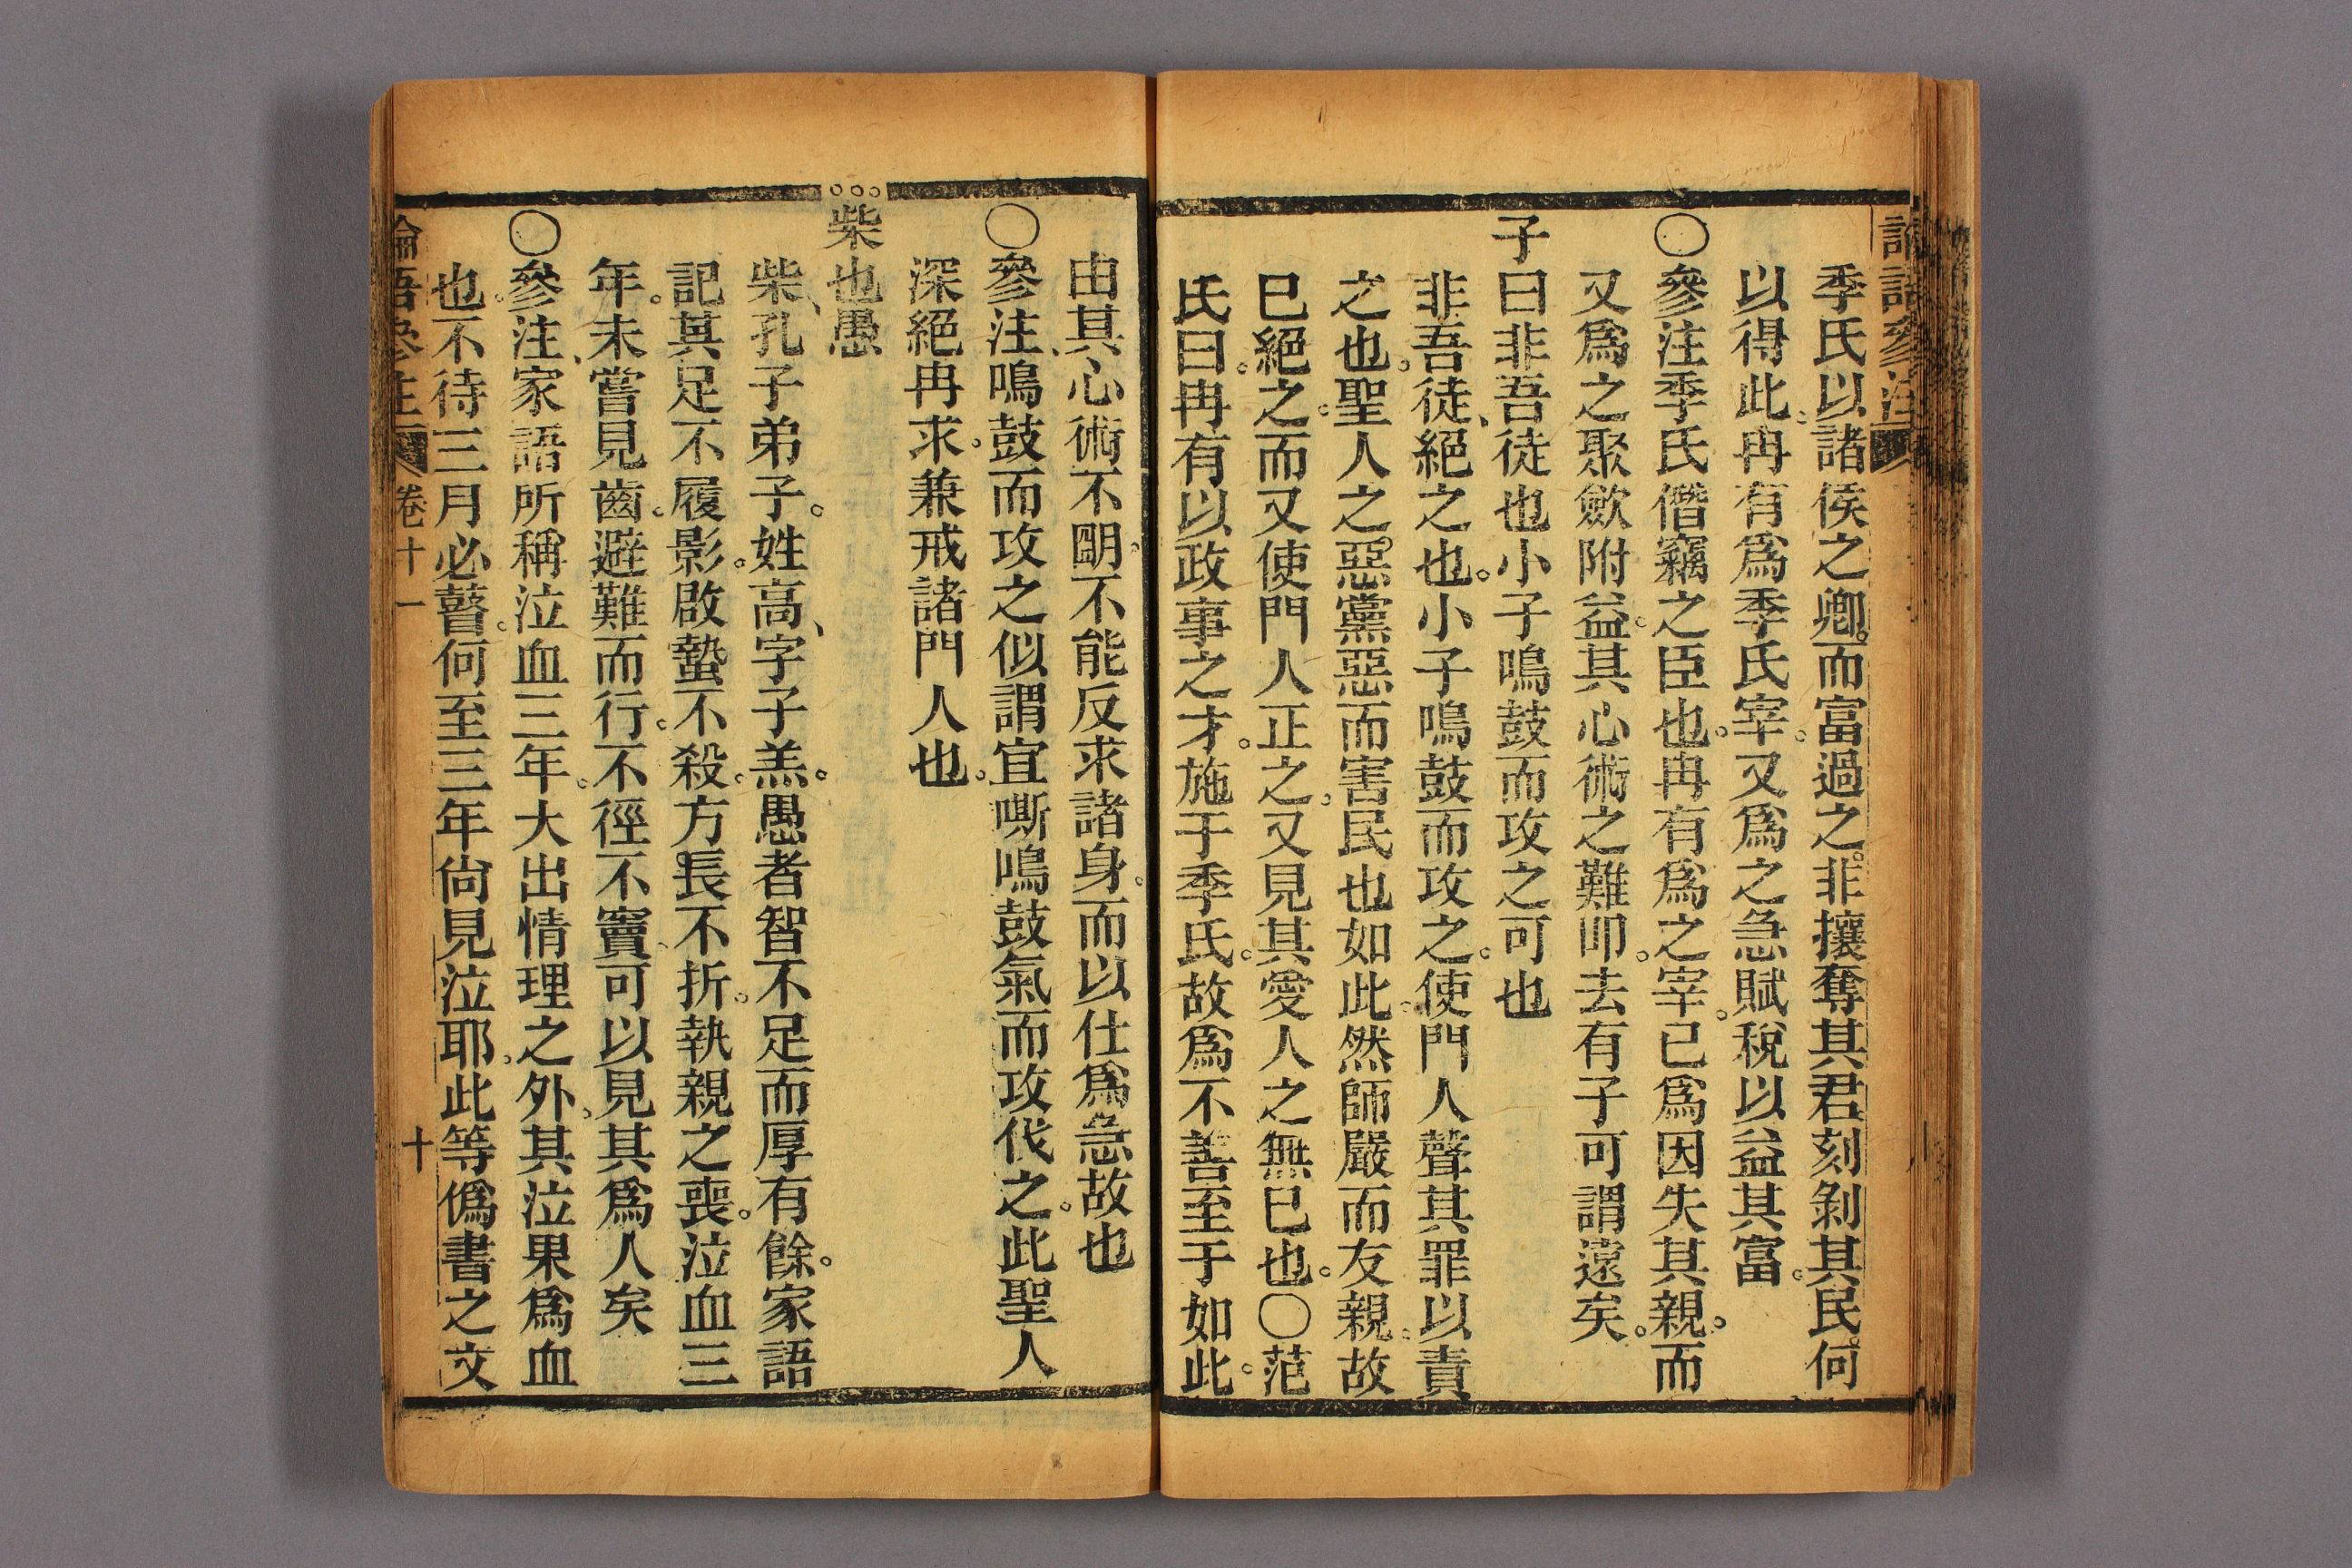 論語參注
季氏以諸侯之卿。而富過之。非攘奪其君刻剝其民。何
以得此。冉有爲季氏宰。又爲之急賦稅以益其富。
〇參注季氏僭竊之臣也。冉有爲之宰。已爲因失其親。而
又爲之聚斂附益。其心術之難叩。去有子可謂遠矣。
子曰非吾徒也小子鳴鼓而攻之可也
非吾徒、絕之也。小子鳴鼓而攻之。使門人聲其罪以責
之也。聖人之惡黨惡而害民也如此。然師嚴而友親。故
已絕之。而又使門人正之。又見其愛人之無已也。〇范
氏曰。冉有以政事之才。施于季氏。故爲不善至于如此。
由其心術不明。不能反求諸身。而以仕爲急故也
〇參注、鳴鼓而攻之似謂宜嘶鳴鼓氣而攻伐之。此聖人
深絕冉求。兼戒諸門人也。
柴也愚
柴、孔子弟子。姓高、字子羔。愚者智不足而厚有餘。家語
記其足不履影。啟蟄不殺。方長不折。執親之喪。泣血三
年。未嘗見齒。避難而行。不徑不竇。可以見其爲人矣
〇參注、家語所稱泣血三年。大出情理之外。其泣果爲血
也。不待三月必瞽。何至三年尙見泣耶。此等僞書之文
論語參注 卷十一 十